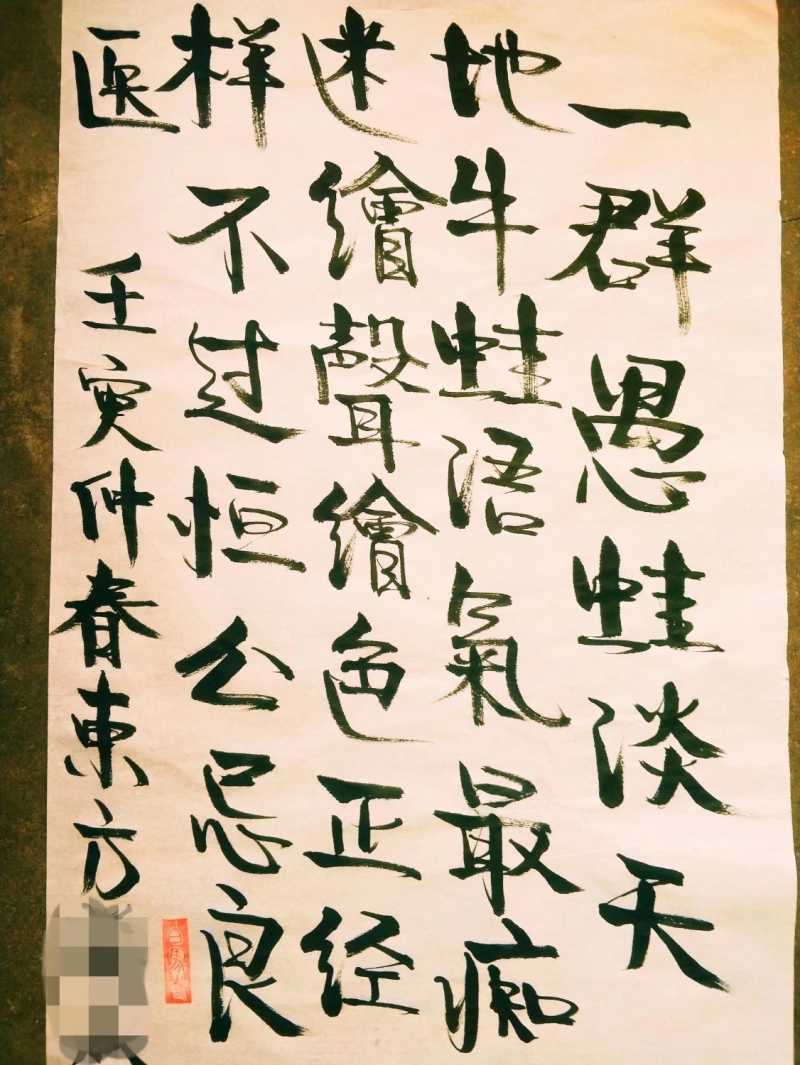 一群愚蛙淡天
地牛蛙浯氣最痴
迷繪聲繪色正经
样不过恒公忌良
医
壬寅仲春東方